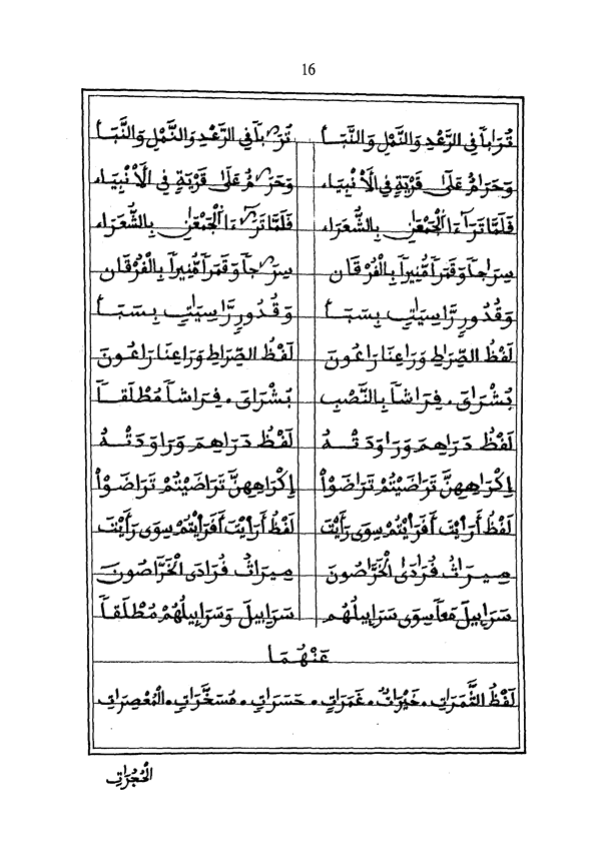 16
تُرَاباً فِي الرَّعْدِ وَالنَّمْلِ وَالنَّبَأ تُرَٰباً فِي الرَّعْدِ وَالنَّمْلِ وَالنَّبَأ
وَحَرَامٌ عَلَىٰ قَرْيَةٍ فِي الْأَنْبِيَاء وَحَرَٰمٌ عَلَىٰ قَرْيَةٍ فِي الْأَنْبِيَاء
فَلَمَّا تَرَٰٓءَا الْجَمْعَٰنِ بِالشُّعَرَاء فَلَمَّا تَرَٰٓءَا الْجَمْعَٰنِ بِالشُّعَرَاء
سِرَاجاً وَقَمَراً مُّنِيراً بِالْفُرْقَان سِرَٰجاً وَقَمَراً مُّنِيراً بِالْفُرْقَان
وَقُدُورٍ رَّاسِيَٰتٍ بِسَبَأ وَقُدُورٍ رَّاسِيَٰتٍ بِسَبَأ
لَفْظُ الصِّرَاطِ وَرَاعِنَا رَاعُونَ لَفْظُ الصِّرَٰطِ وَرَٰعِنَا رَٰعُونَ
بُشْرَايَ. فِرَاشاً بِالنَّصْبِ بُشْرَايَ. فِرَٰشاً مُطْلَقاً
لَفْظُ دَرَاهِمَ وَرَاوَدَتْهُ لَفْظُ دَرَٰهِمَ وَرَٰوَدَتْهُ
إِكْرَاهِهِنَّ تَرَاضَيْتُمْ تَرَاضَوْا إِكْرَٰهِهِنَّ تَرَٰضَيْتُمْ تَرَٰضَوْا
لَفْظُ أَرَأَيْتَ أَفَرَأَيْتُمْ سِوَى رَأَيْتَ لَفْظُ أَرَأَيْتَ أَفَرَأَيْتُمْ سِوَى رَأَيْتَ
مِيرَاثُ فُرَادَىٰ الْخَرَّاصُونَ مِيرَٰثُ فُرَٰدَى الْخَرَّٰصُونَ
سَرَابِيلَ مَعاً سِوَى سَرَابِيلُهُم سَرَٰبِيلَ وَسَرَابِيلُهُمْ مُطْلَقاً
عَنْهُمَا
لَفْظُ الثَّمَرَٰتِ. خَيْرَٰتٌ. غَمَرَٰتِ. حَسَرَٰتٍ. مُسَخَّرَٰتٍ. الْمُعْصِرَٰتِ
الْحُجُرَٰتِ